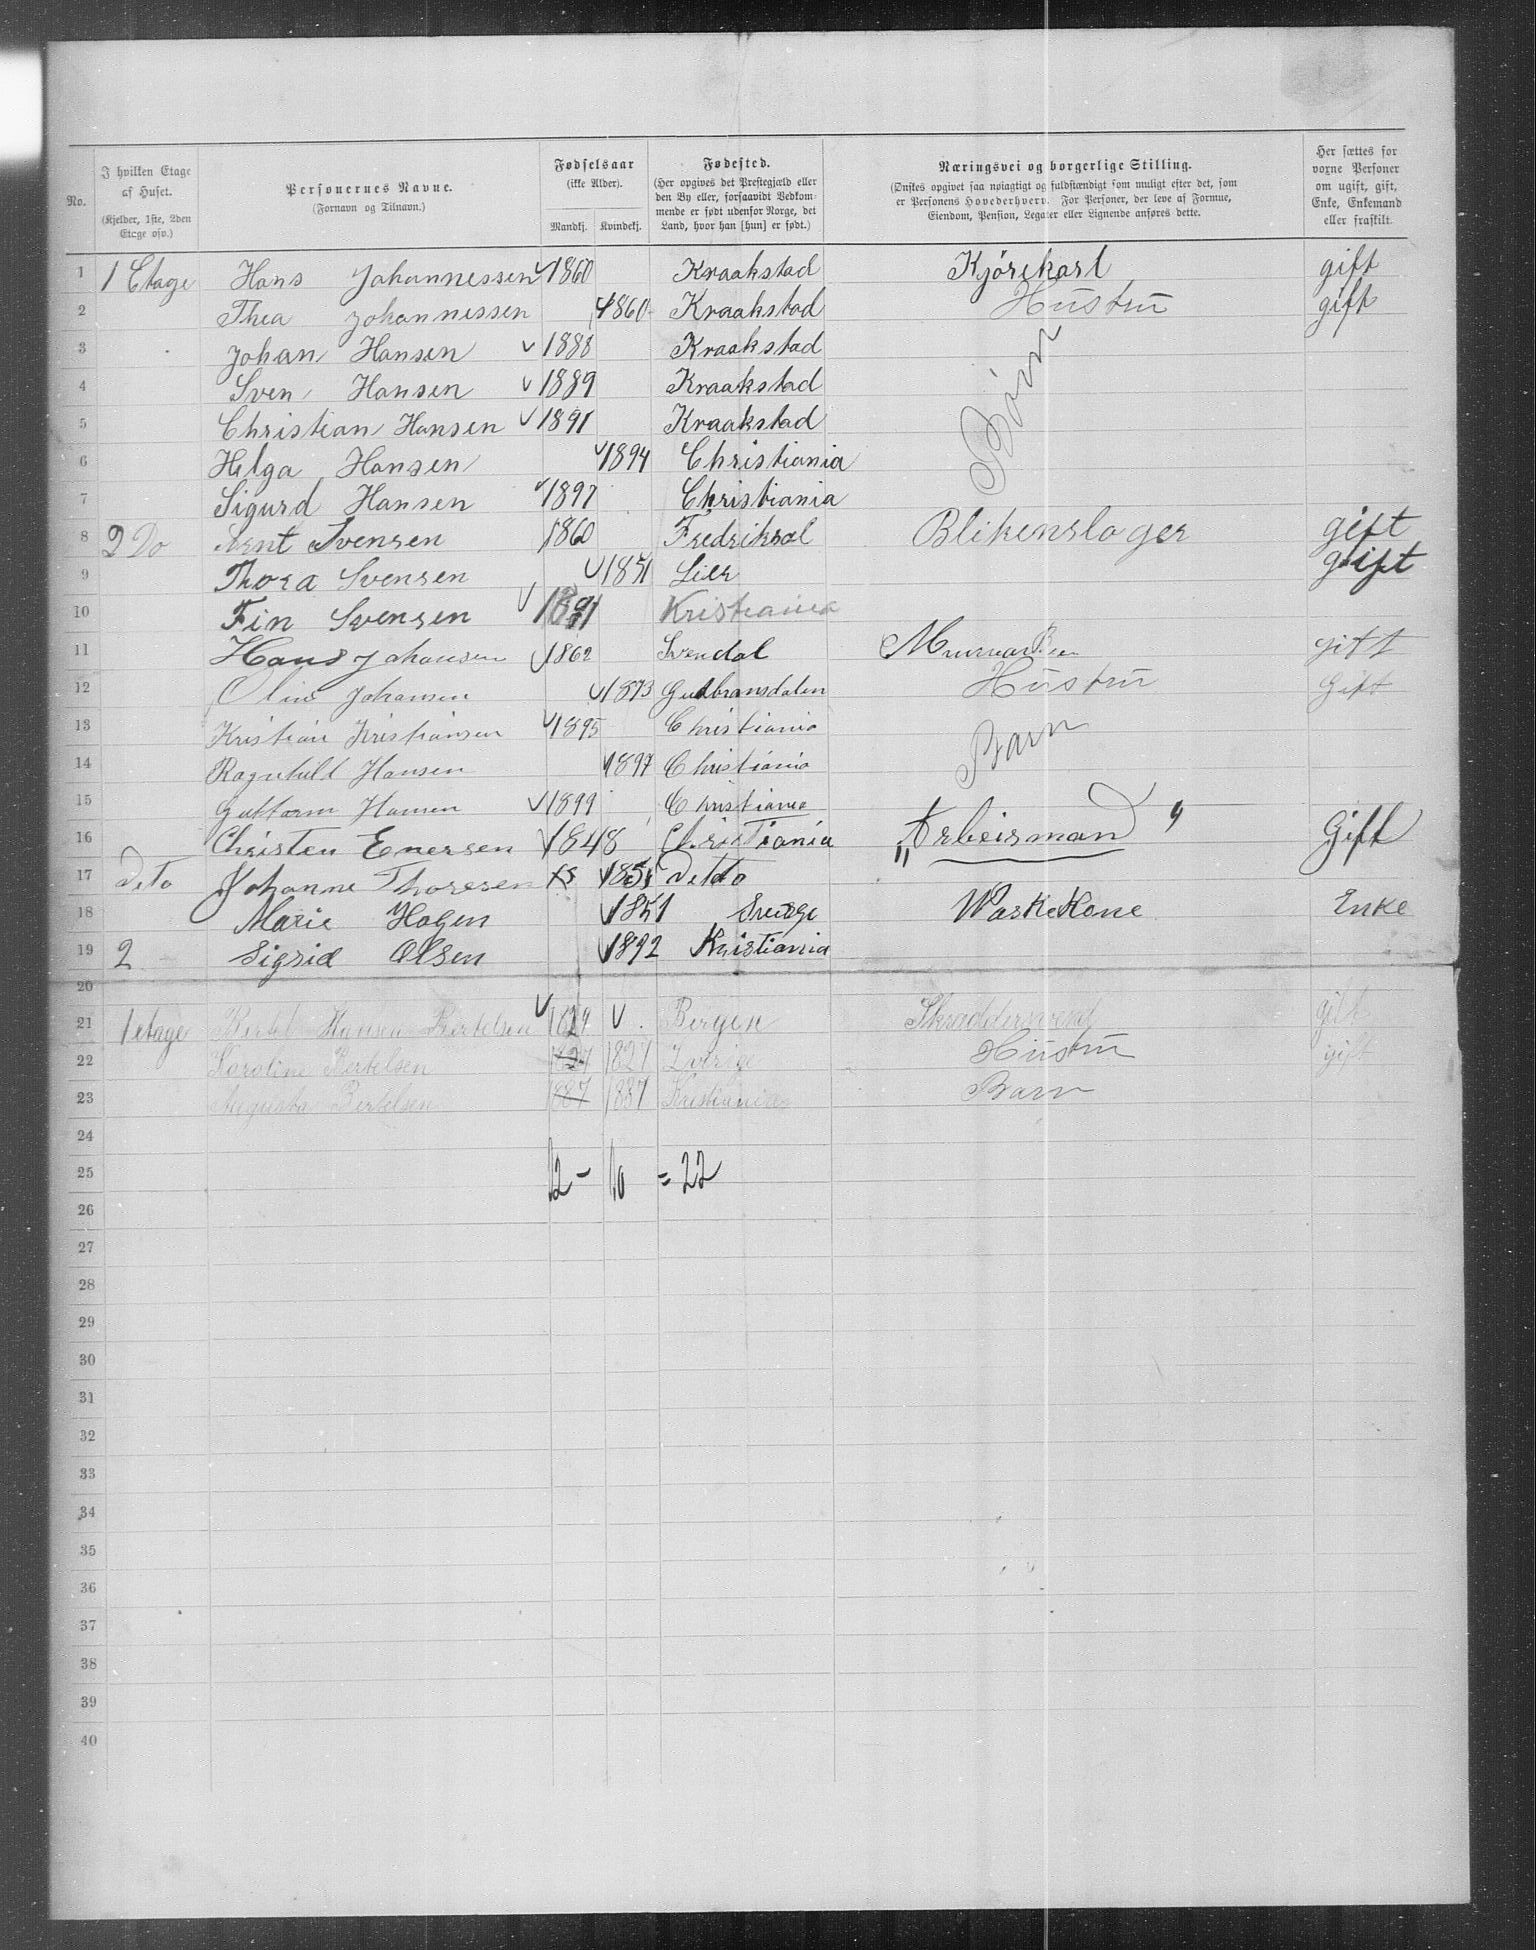 No.
I hvilken Etage af Huset.
(Kjelder, 1ste, 2den Etage osv.)
Personernes Navne.
(Fornavn og Tilnavn.)
Fødselsaar
(ikke Alder).
Mandkj. Kvindekj.
Fødested.
(Her opgives det Prestegjæld eller
den By eller, forsaavidt Vedkom-
mende er født udenfor Norge, det
Land, hvor han [hun] er født.)
Næringsvei og borgerlige Stilling.
(Ønskes opgivet saa nøiagtigt og fuldstændigt som muligt efter det, som
er Personens Hovederhverv. For Personer, der leve af Formue,
Eiendom, Pension, Legater eller Lignende anføres dette.
Her sættes for
voxne Personer
om ugift, gift,
Enke, Enkemand
eller fraskilt.
1 1 Etage Hans Johannessen 1860 Kraakstad Kjörekarl gift
2 Thea Johannessen 1860 Kraakstad Hustru gift
3 Johan Hansen 1888 Kraakstad Börn
4 Sven Hansen 1889 Kraakstad
5 Christian Hansen 1891 Kraakstad
6 Helga Hansen 1894 Christiania
7 Sigurd Hansen 1897 Christiania
8 2 Do Arnt Svensen 1860 Fredriksal Blikenslager gift
9 Thora Svensen 1851 Lier gift
10 Fin Svensen 1891 Kristiania
11 Hans Johansen 1862 Svendal gift
12 Oline Johansen 1873 Gudbransdalen Hustru Gift
13 Kristian Kristiansen 1895 Christiania Barn
14 Ragnhild Hansen 1897 Christiania
15 Guttorm Hansen 1899 Christiania
16 Christen Enersen 1848 Christiania „Arbeisman" Gift
17 Deto Johanne Thoresen 1851 Detto
18 Marie Hagen 1851 Sverige Waskekone Enke
19 2 Sigrid Olsen 1892 Kristiania
20
21 1 etage Bertel Hansen Bertelsen 1829 Bergen Skræddersvend gift
22 Karoline Bertelsen 1827 Sverige Hustru gift
23 Augusta Bertelsen 1887 1887 Kristiania Barn
24
25 12 - 10 = 22
26
27
28
29
30
31
32
33
34
35
36
37
38
39
40